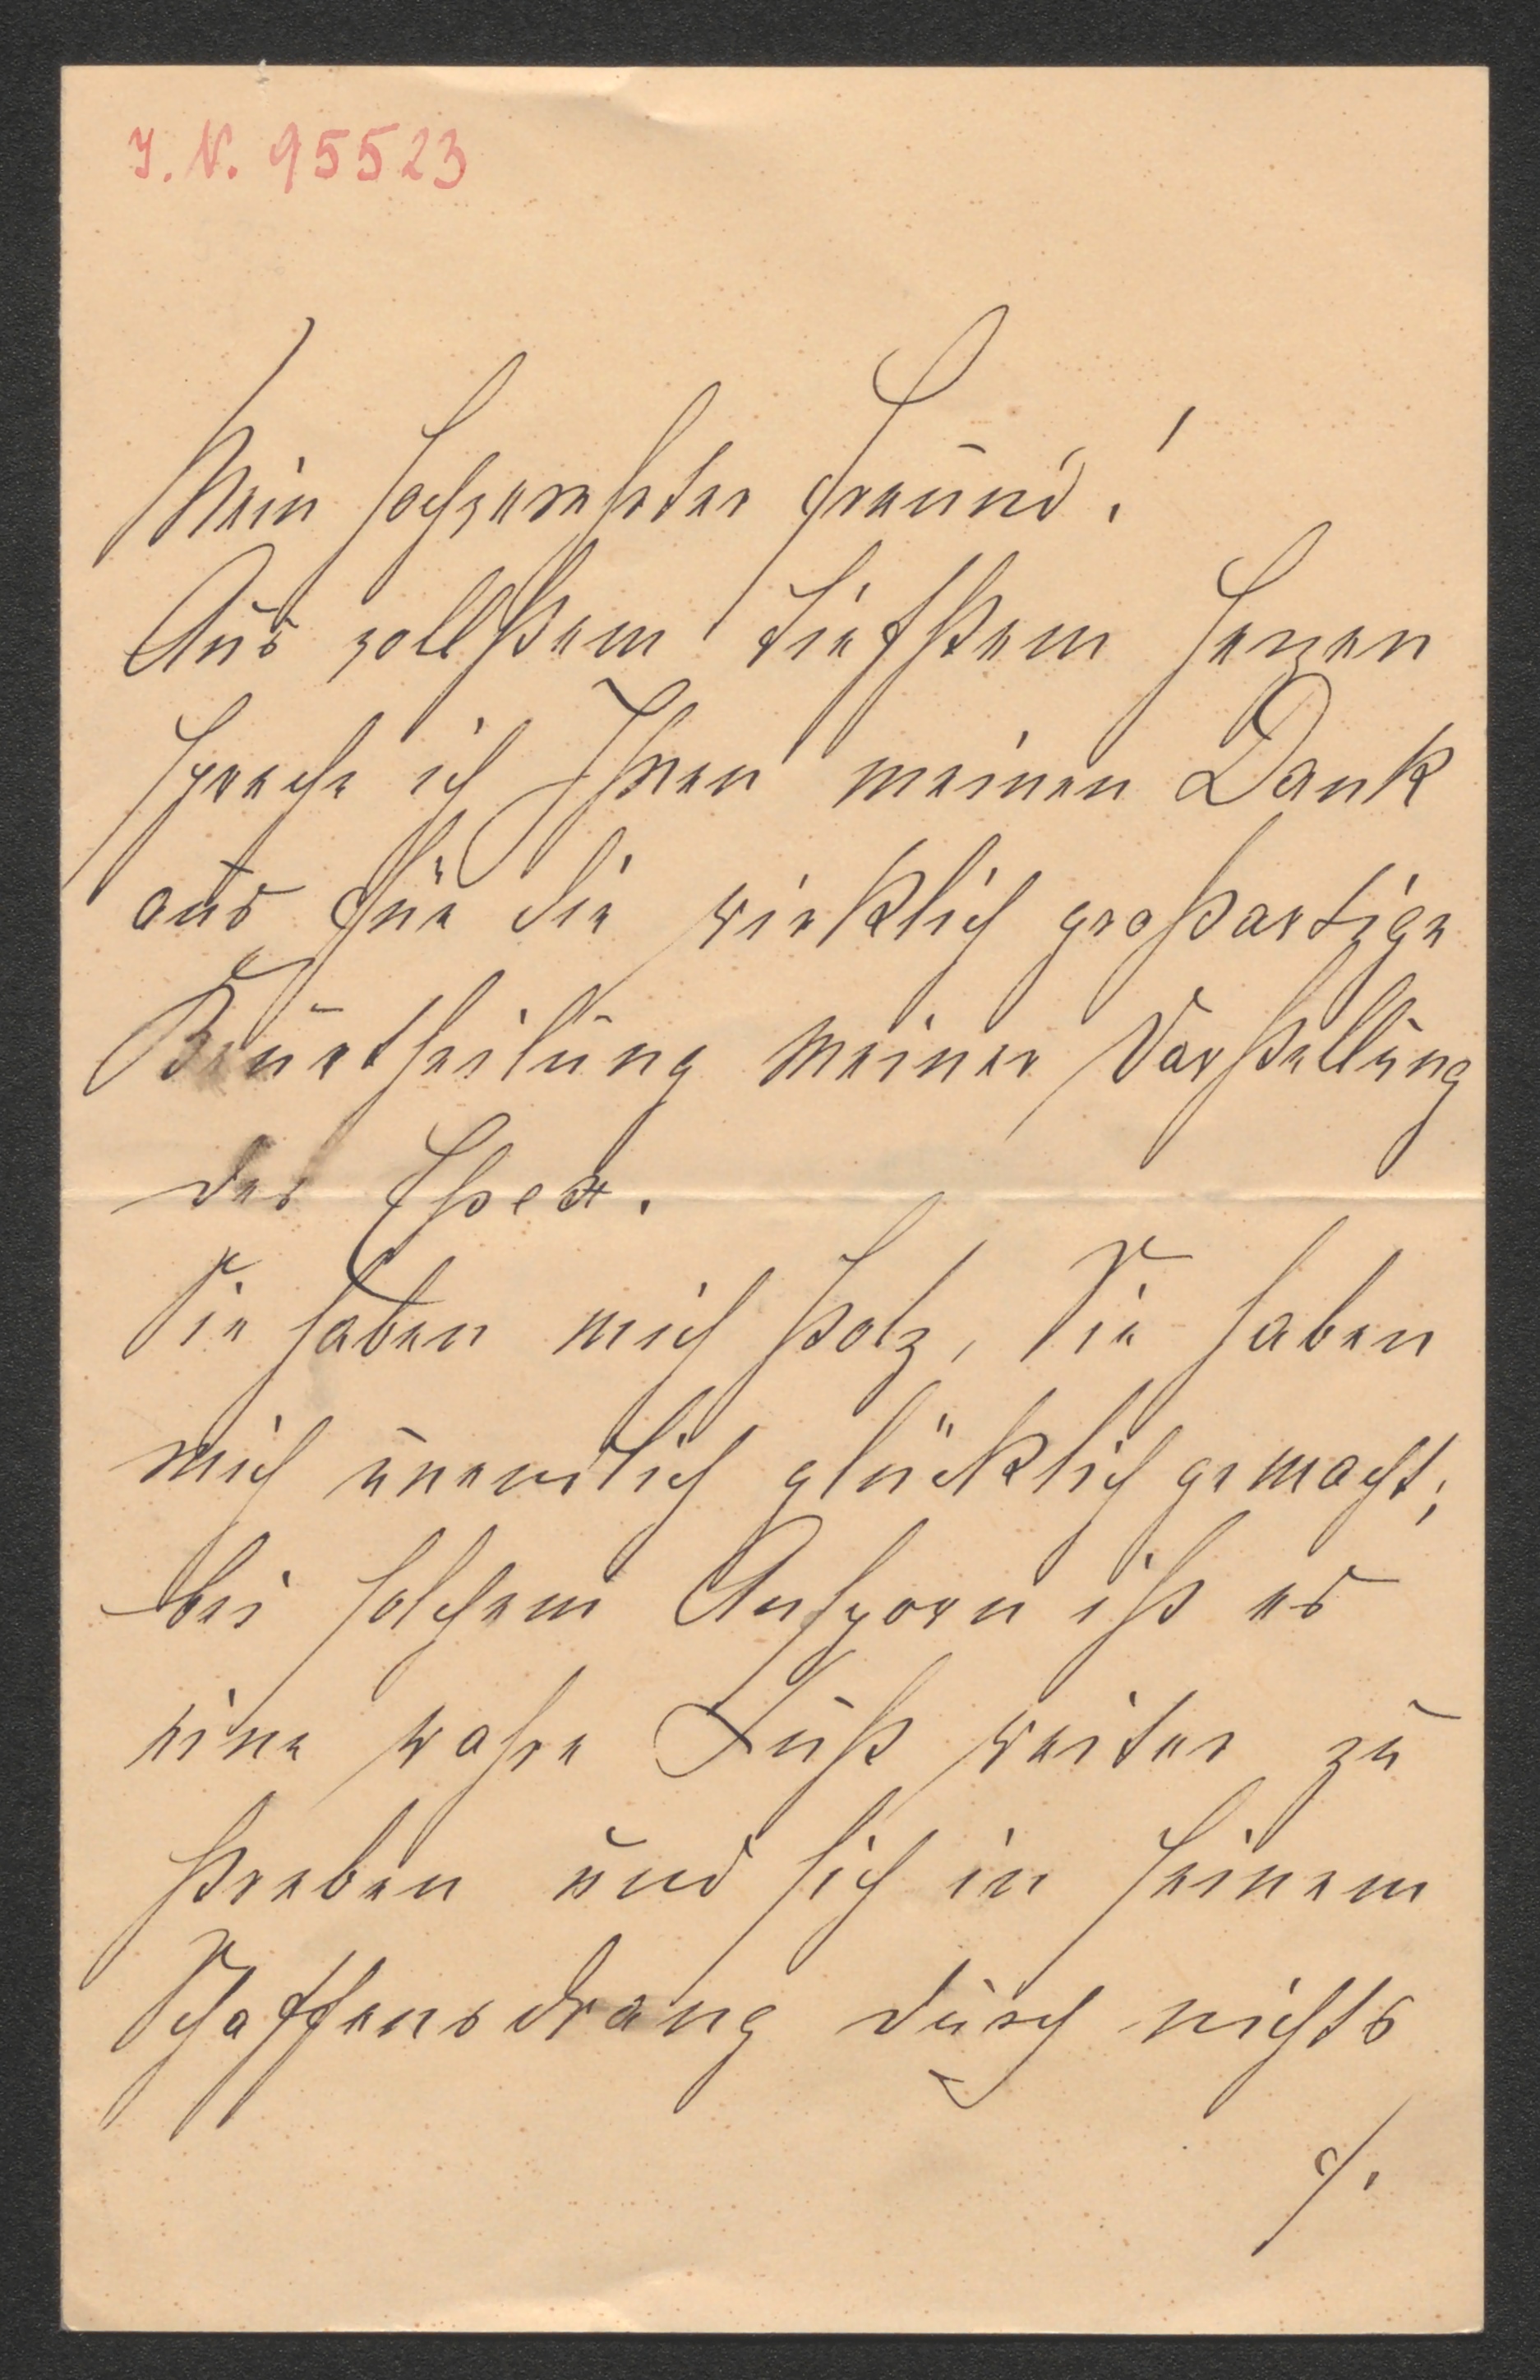 J. N. 95523
Mein hochverehrter Freund!
Aus vollstem tiefstem Herzen
spreche ich Ihnen meinen Dank
aus für die wirklich großartige
Beurtheilung meiner Darstellung
des Essex.
Sie haben mich stolz, Sie haben
mich unendlich glücklich gemacht;
bei solchem Ansporn ist es
eine wahre Lust weiter zu
streben und sich in seinem
Schaffensdrang durch nichts
./.